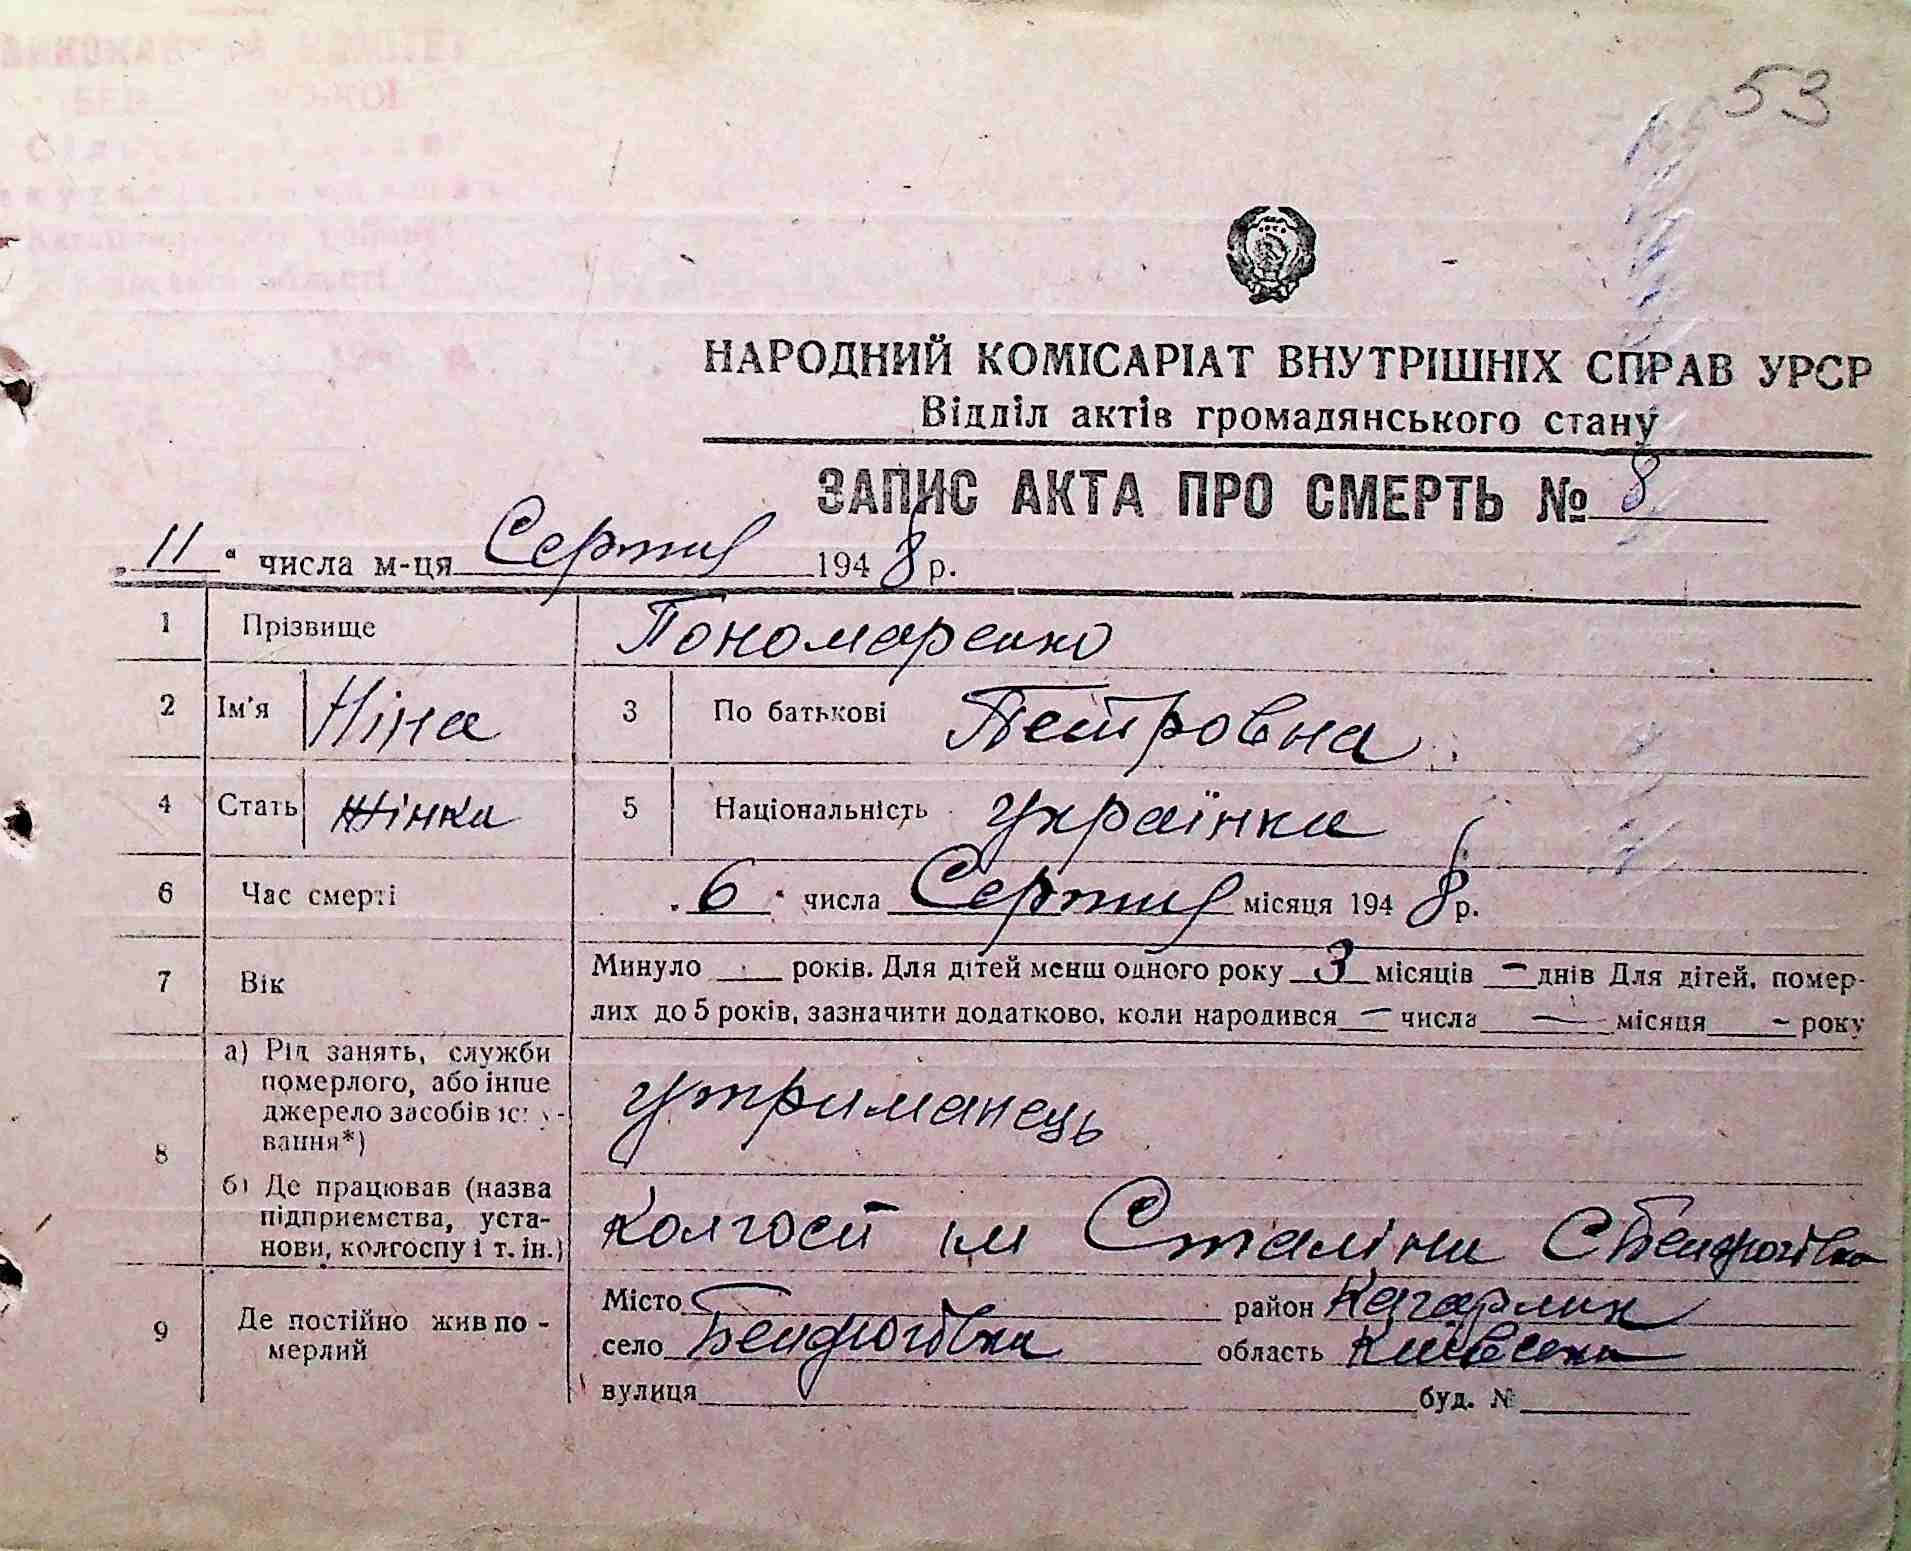 53
НАРОДНИЙ КОМІСАРІАТ ВНУТРІШНІХ СПРАВ УРСР
Відділ актів громадянського стану
ЗАПИС АКТА ПРО СМЕРТЬ № 8
„11“ числа м-ця Серпня 1948 р.
1 Прізвище Пономаренко
2 Ім'я Ніна 3 По батькові Петровна
4 Стать жінка 5 Національність українка
6 Час смерті „6“ числа Серпня місяця 1948 р.
7 Вік Минуло років. Для дітей менш одного року 3 місяців — днів Для дітей, помер-
лих до 5 років, зазначити додатково, коли народився — числа — місяця — року
8 а) Рід занять, служби
померлого, або інше
джерело засобів існу-
вання*) утриманець
б) Де працював (назва
підприємства, уста-
нови, колгоспу і т. ін.) Колгосп ім Сталіна С Бендюгівка
9 Де постійно жив по-
мерлий
Місто район Кагарлик
село Бендюгівка область Київська
вулиця буд. №